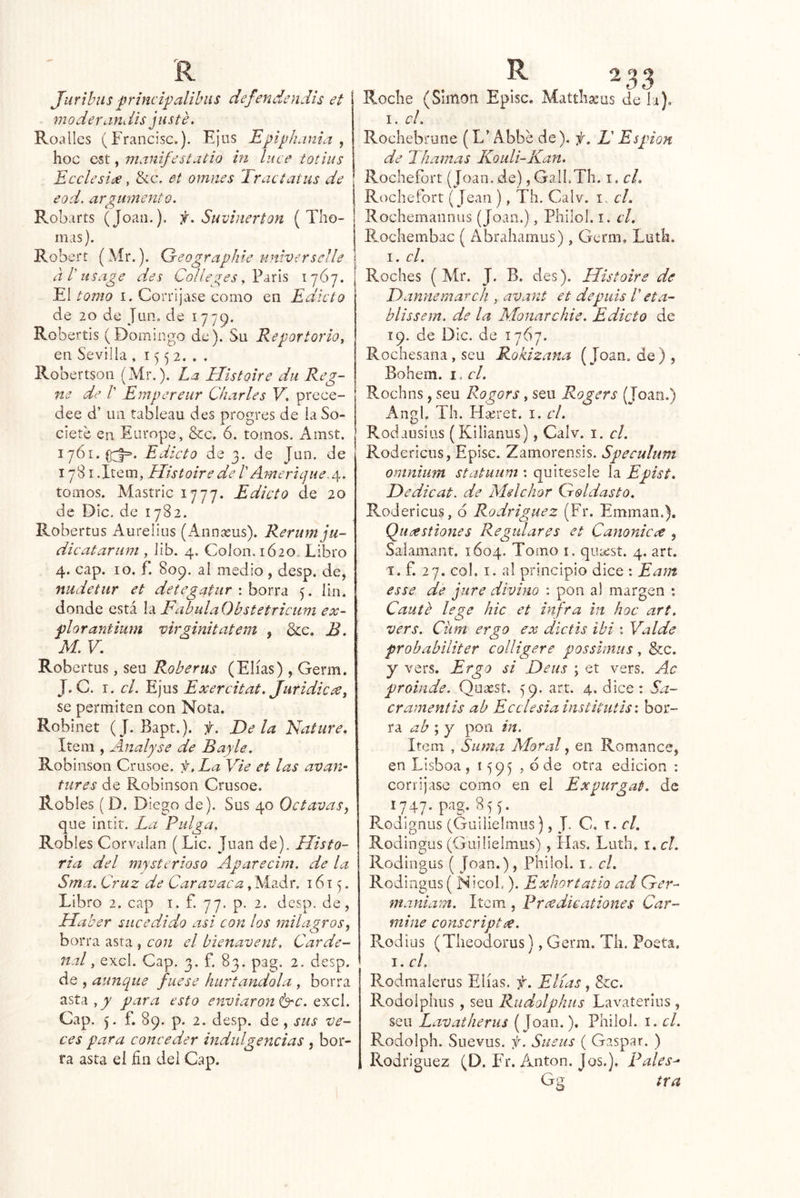 R
Juribus principalibus defendendis et
moderandis justè.
Roalles (Francisc.). Ejus Epiphania ,
hoc est, manifestatio in luce totius
Ecclesiæ, &c. et omnes Tractatus de
eod. argumento.
Robarts (Joan.). ℣. Suvinerton ( Tho-
mas).
Robert (Mr.). Geographie universelle
à l'usage des Colleges, Paris 1767.
El tomo 1. Corrijase como en Edicto
de 20 de Jun. de 1779.
Robertis (Domingo de). Su Reportorio,
en Sevilla , 1552. . .
Robertson (Mr.). La Histoire du Reg-
ne de l' Empereur Charles V. prece-
dee d' un tableau des progres de la So-
cietè en Europe, &c. 6. tomos. Amst.
1761. ☞. Edicto de 3. de Jun. de
1781.Item, Histoire de l'Amerique.4.
tomos. Mastric 1777. Edicto de 20
de Dic. de 1782.
Robertus Aurelius (Annæus). Rerum ju-
dicatarum , lib. 4. Colon.1620. Libro
4. cap. 10. f. 809. al medio , desp. de,
nudetur et detegatur : borra 5. lin.
donde está la Fabula Obstetricum ex-
plorantium virginitatem , &c. B.
M. V.
Robertus , seu Roberus (Elías) , Germ.
J. C. 1. cl. Ejus Exercitat. Juridicæ,
se permiten con Nota.
Robinet (J. Bapt.). ℣. De la Nature.
Item , Analyse de Bayle.
Robinson Crusoe. ℣. La Vie et las avan-
tures de Robinson Crusoe.
Robles ( D. Diego de). Sus 40 Octavas,
que intit. La Pulga.
Robles Corvalan ( Lic. Juan de). Histo-
ria del mysterioso Aparecim. de la
Sma. Cruz de Caravaca , Madr. 1615.
Libro 2. cap 1. f. 77. p. 2. desp. de,
Haber sucedido asi con los milagros,
borra asta , con el bienavent. Carde-
nal , excl. Cap. 3. f. 83. pag. 2. desp.
de , aunque fuese hurtandola , borra
asta , y para esto enviaron &c. excl.
Cap. 5. f. 89. p. 2. desp. de , sus ve-
ces para conceder indulgencias , bor-
ra asta el fin del Cap.
R 233
Roche (Simon Episc. Matthæus de la).
1. cl.
Rochebrune ( L'Abbè de). ℣. L' Espion
de Thamas Kouli-Kan.
Rochefort (Joan. de) , Gall. Th. 1. cl.
Rochefort ( Jean ) , Th. Calv. 1. cl.
Rochemannus (Joan.) , Philol. 1. cl.
Rochembac ( Abrahamus) , Germ. Luth.
1. cl.
Roches ( Mr. J. B. des). Histoire de
Dannemarch , avant et depuis l' eta-
blissem. de la Monarchie. Edicto de
19. de Dic. de 1767.
Rochesana , seu Rokizana (Joan. de) ,
Bohem. 1. cl.
Rochns , seu Rogors , seu Rogers (Joan.)
Angl. Th. Hæret. 1. cl.
Rodausius ( Kilianus) , Calv. 1. cl.
Rodericus, Episc. Zamorensis. Speculum
omnium statuum : quitesele la Epist.
Dedicat. de Melchor Goldasto.
Rodericus, ó Rodriguez (Fr. Emman.).
Quæstiones Regulares et Canonicæ ,
Salamant. 1604. Tomo 1. quæst. 4. art.
1. f. 27. col. 1. al principio dice : Eam
esse de jure divino : pon al margen :
Cautè lege hic et infra in hoc art.
vers. Cùm ergo ex dictis ibi : Valde
probabiliter colligere possimus , &c.
y vers. Ergo si Deus ; et vers. Ac
proinde. Quæst. 59. art. 4. dice : Sa-
cramentis ab Ecclesia institutis: bor-
ra ab ; y pon in.
Item , Suma Moral , en Romance,
en Lisboa , 1595 , ó de otra edicion :
corrijase como en el Expurgat. de
1747. pag. 855.
Rodignus (Guilielmus) , J. C. 1. cl.
Rodingus (Guilielmus) , Has. Luth. 1. cl.
Rodingus ( Joan.) , Philol. 1. cl.
Rodingus ( Nicol. ). Exhortatio ad Ger-
maniam. Item , Prædicationes Car-
mine conscriptæ.
Rodius (Theodorus) , Germ. Th. Poeta.
1. cl.
Rodmalerus Elías. ℣. Elías , &c.
Rodolphus , seu Rudolphus Lavaterius ,
seu Lavatherus (Joan. ). Philol. 1. cl.
Rodolph. Suevus. ℣. Sueus ( Gaspar. )
Rodriguez (D. Fr. Anton. Jos.). Pales-
Gg tra